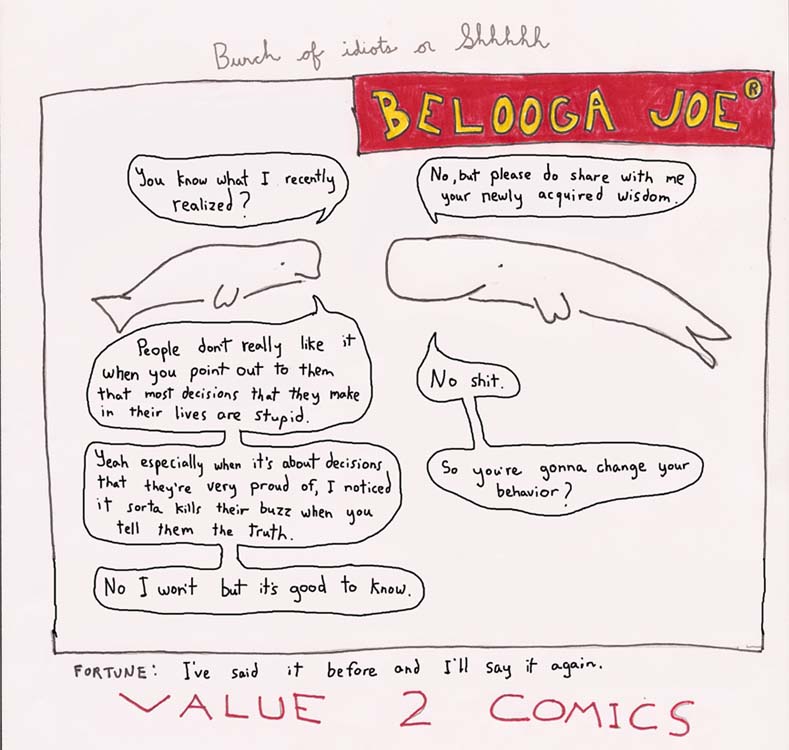 Bunch of idiots or Shhhhh
BELOOGA JOE®
You know what I recently
realized?
No, but please do share with me
your newly acquired wisdom.
People don't really like it
when you point out to them
that most decisions that they make
in their lives are stupid.
No shit.
Yeah especially when it's about decisions
that they're very proud of, I noticed
it sorta kills their buzz when you
tell them the truth.
So you're gonna change your
behavior?
No I won't but it's good to know.
FORTUNE: I've said it before and I'll say it again.
VALUE 2 COMICS